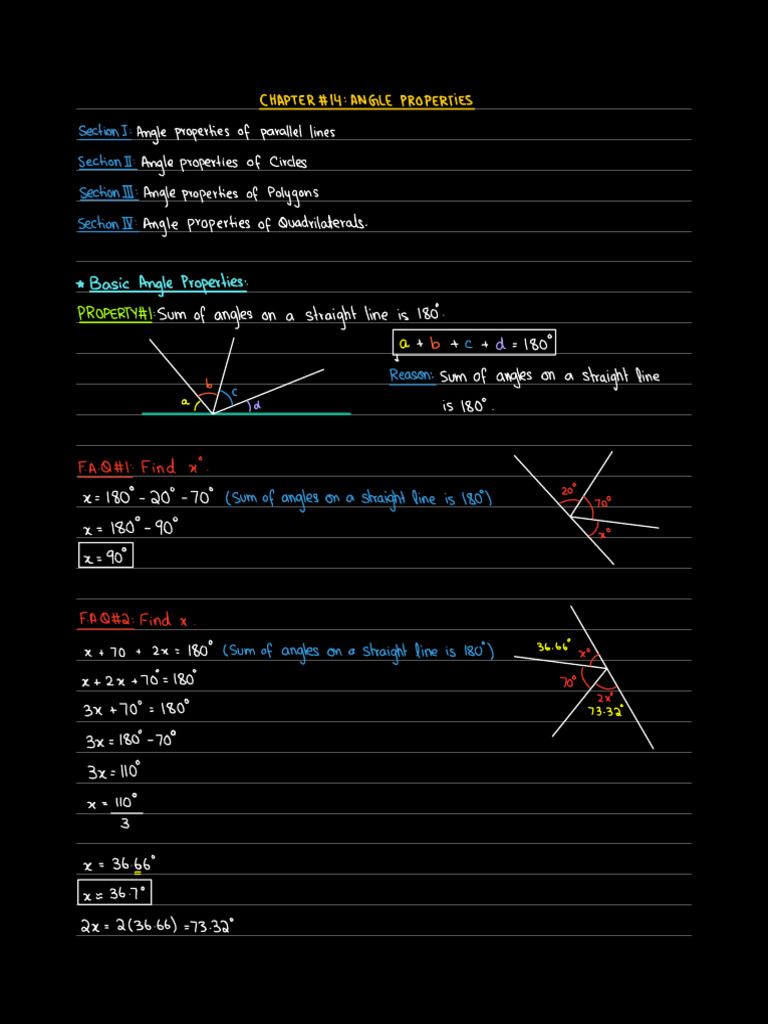 CHAPTER #14: ANGLE PROPERTIES
Section I: Angle properties of parallel lines
Section II: Angle properties of Circles
Section III: Angle properties of Polygons
Section IV: Angle properties of Quadrilaterals.
* Basic Angle Properties:
PROPERTY#1: Sum of angles on a straight line is 180°.
a + b + c + d = 180°
Reason: Sum of angles on a straight line
is 180°.
a
b
c
d
F.A.Q#1: Find x°.
x = 180° - 20° - 70° (Sum of angles on a straight line is 180°)
x = 180° - 90°
x = 90°
20°
70°
x°
F.A.Q#2: Find x.
x + 70 + 2x = 180° (Sum of angles on a straight line is 180°)
x + 2x + 70° = 180°
3x + 70° = 180°
3x = 180° - 70°
3x = 110°
x = 110°
3
x = 36.66°
x ≈ 36.7°
2x = 2(36.66) = 73.32°
36.66°
x°
70°
2x°
73.32°